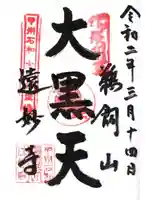 令和二年三月十四日
鵜飼山
大黒天
遠妙寺
甲州石和